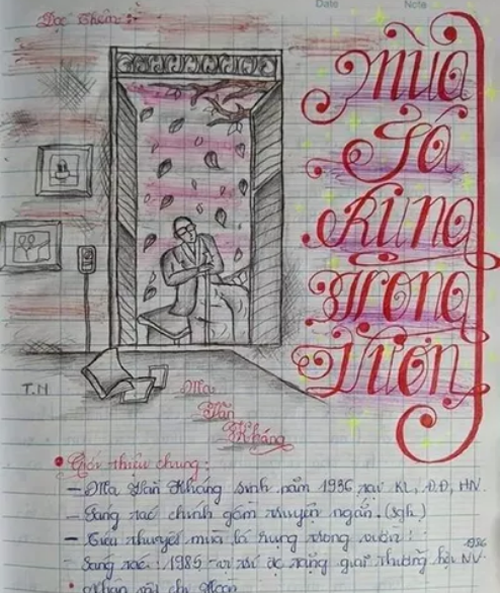 Date
Note
Đọc thêm:
mùa
lá
Rụng
Trong
Vườn
T.N
Ma
Văn
Kháng
Giới thiệu chung:
- Ma Văn Kháng sinh năm 1936 tại KL, Đ.Đ, HN.
- Sáng tác chính gồm truyện ngắn. (sgk)
- Tiểu thuyết mùa lá rụng trong vườn:
- Sáng tác: 1985 giải thưởng hội NV-
1986